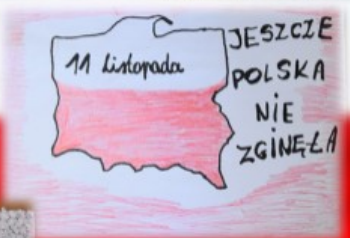 11 Listopada
JESZCZE
POLSKA
NIE
ZGINĘŁA